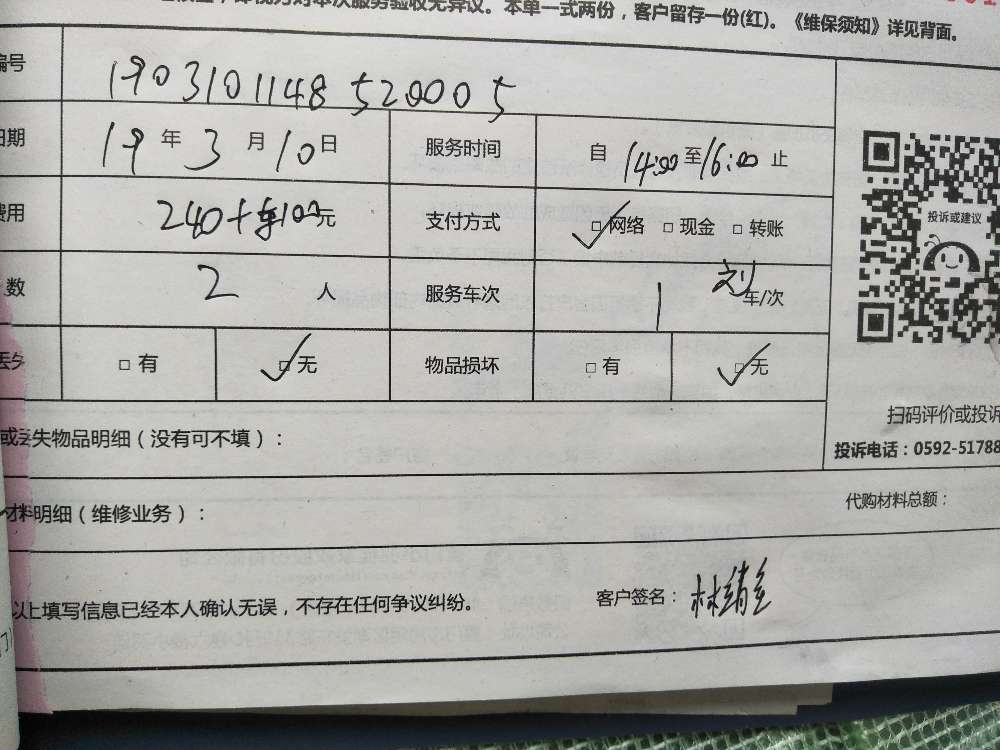 本次服务验收无异议。本单一式两份，客户留存一份(红)。《维保须知》详见背面。
编号 1903101148520005
日期 19年3月10日 服务时间 自14:00至16:00止
费用 240+车100元 支付方式 □网络 □现金 □转账
数 2人 服务车次 1 刘 车/次
丢失 □有 □无 物品损坏 □有 □无
投诉或建议
扫码评价或投诉
投诉电话：0592-51788
或丢失物品明细（没有可不填）：
材料明细（维修业务）： 代购材料总额：
以上填写信息已经本人确认无误，不存在任何争议纠纷。 客户签名：